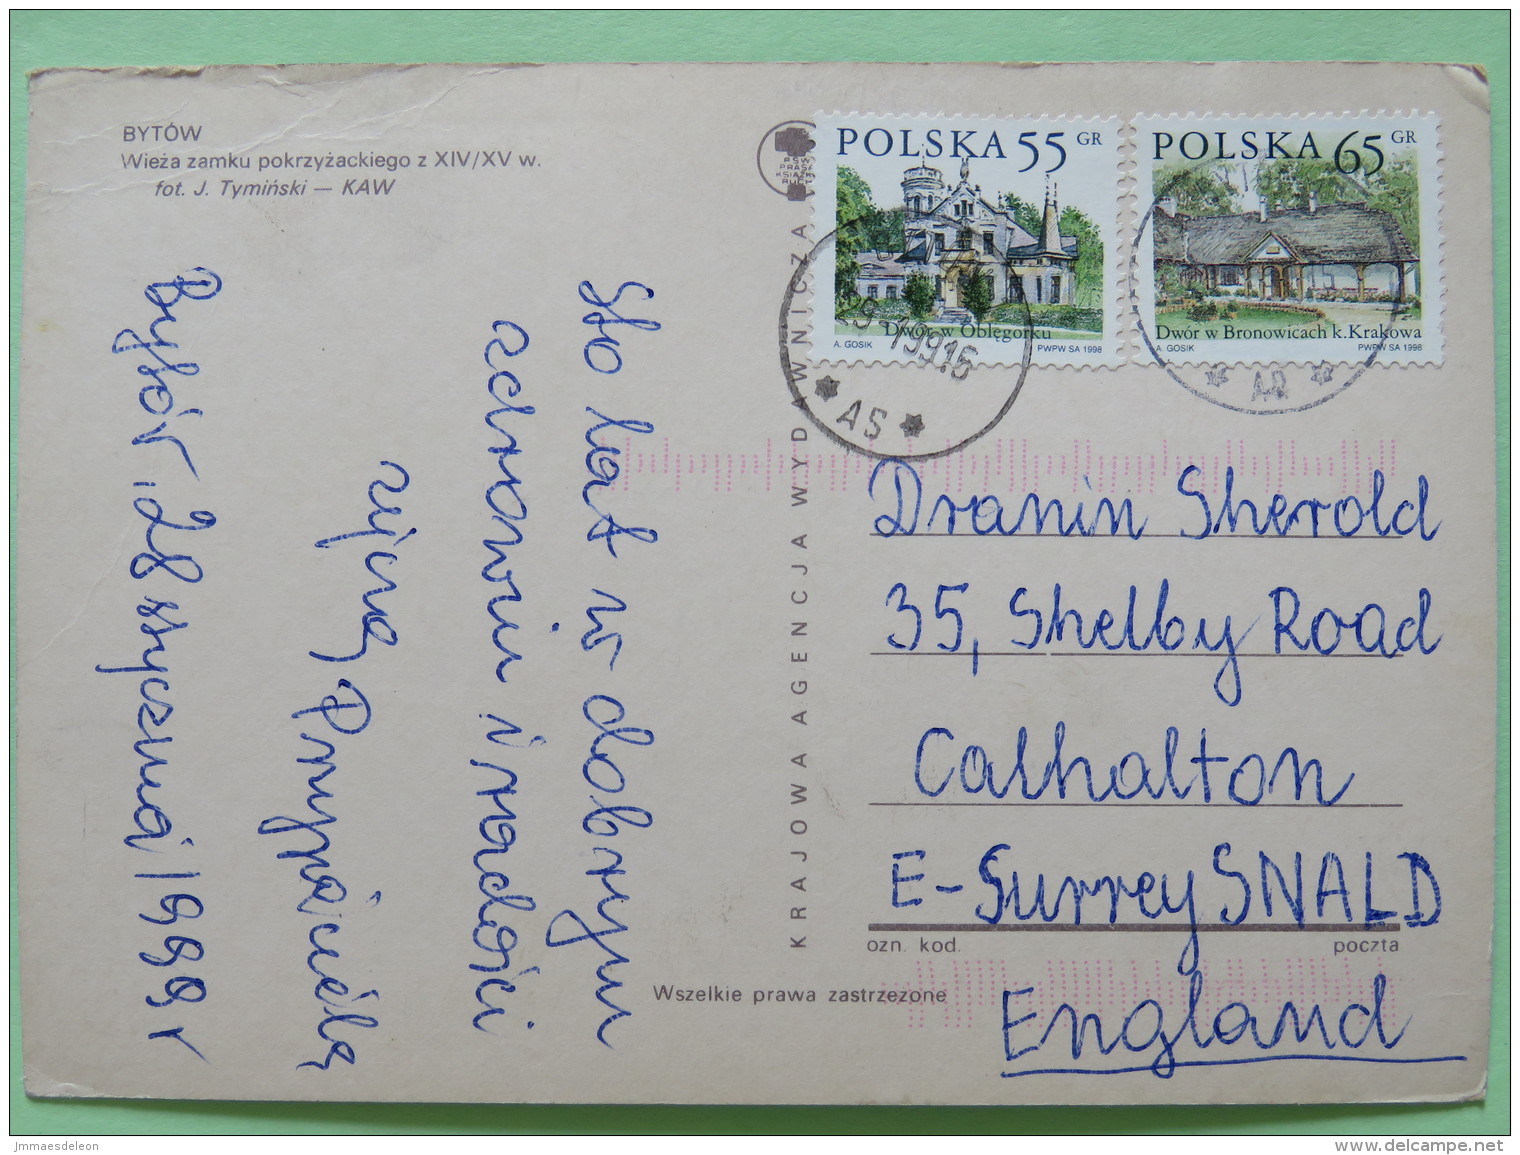 BYTÓW
Wieża zamku pokrzyżackiego z XIV/XV w.
fot. J. Tymiński — KAW
POLSKA 55 GR
Dwór w Oblęgorku
A. GOSIK PWPW SA 1998
POLSKA 65 GR
Dwór w Bronowicach k. Krakowa
A. GOSIK PWPW SA 1998
AS
AD
KRAJOWA AGENCJA WYDAWNICZA
Sto lat w dobrym
zdrowiu i radości
życzą
Przyjaciele
Bytów, 28 stycznia 1999 r
Dranin Sherold
35, Shelby Road
Calhalton
E-Surrey SNALD
ozn. kod. poczta
England
Wszelkie prawa zastrzeżone
jmmaesdeleon
delcampe.net